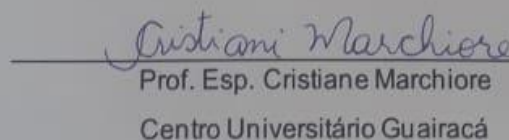 Cristiani Marchiore
Prof. Esp. Cristiane Marchiore
Centro Universitário Guairacá